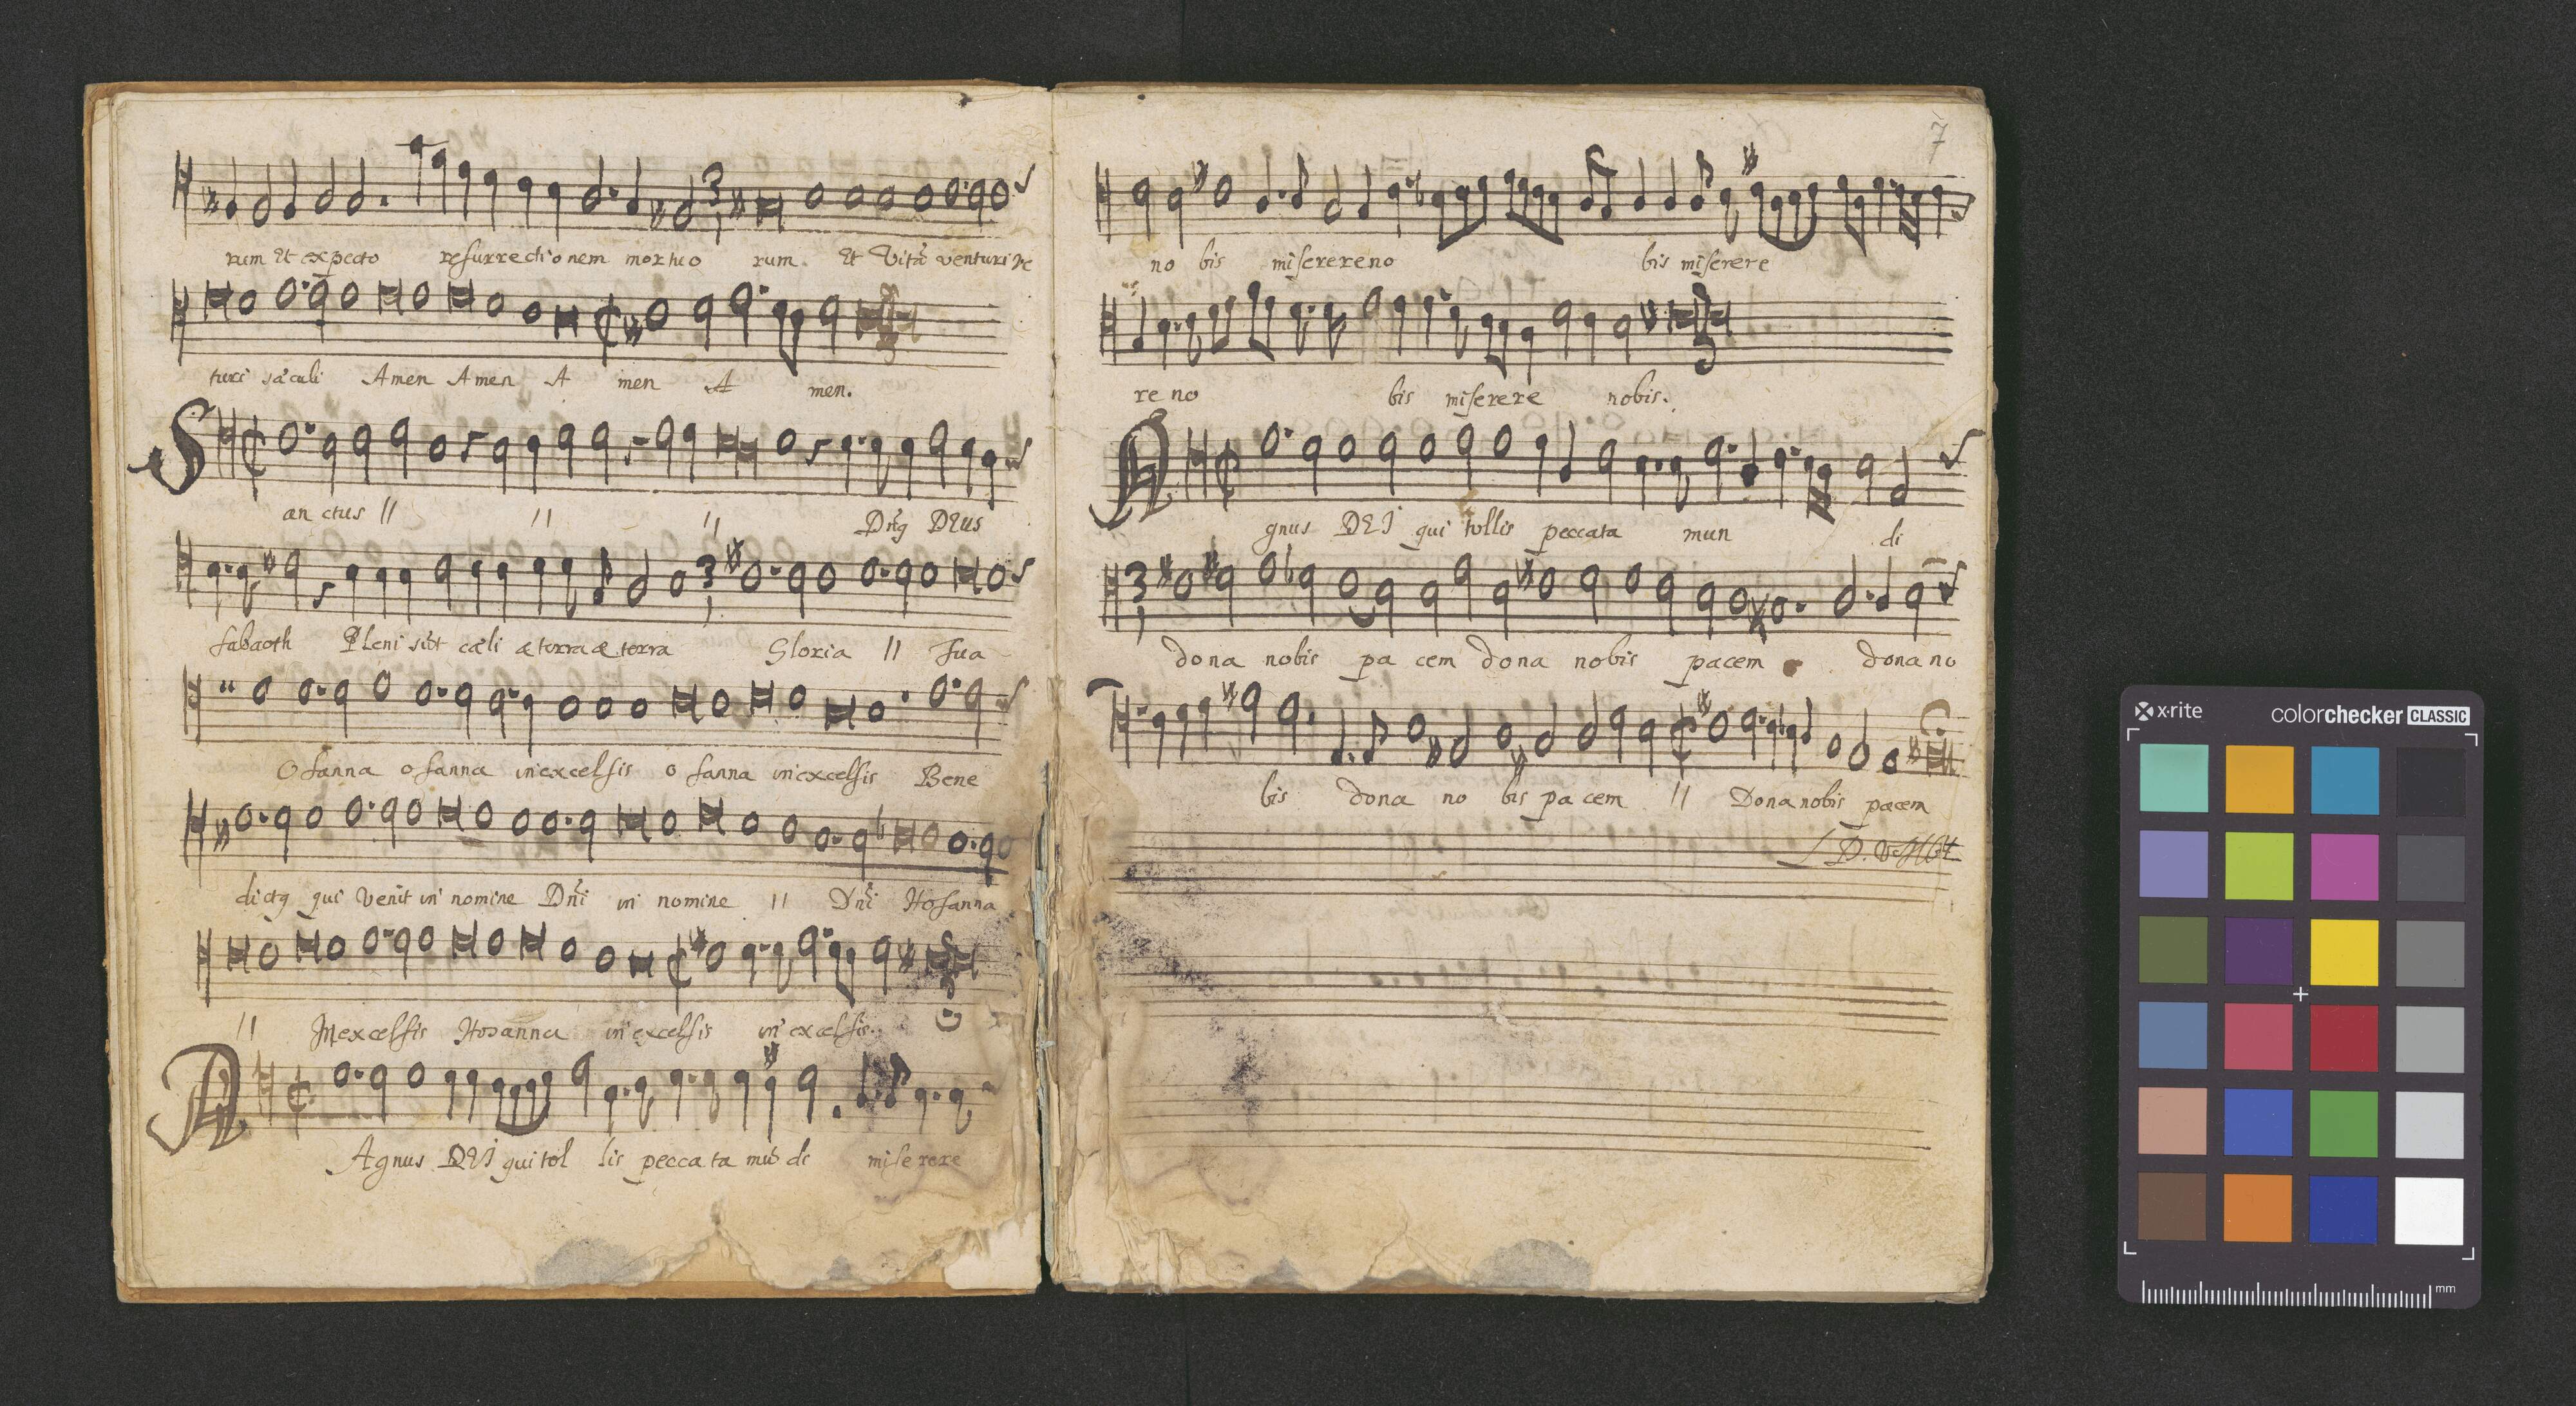 rum Et expecto resurrectionem mortuo rum. Et Vitã venturi ve
turi sæculi Amen Amen A men A men.
Sanctus // // // Dñs DEUS
sabaoth Pleni sũt cæli æ terra æ terra Gloria // Tua
Osanna osanna in excelsis osanna in excelsis Bene
dictq qui venit in nomine Dñi in nomine // Dñi Hosanna
// In excelsis Hosanna in excelsis in excelsis.
Agnus DEI qui tol lis peccata mũdi miserere
7
no bis miserere no bis miserere
re no bis miserere nobis.
Agnus DEI qui tollis peccata mun di
3 dona nobis pa cem dona nobis pacem dona no
bis dona no bis pa cem // Dona nobis pacem
x-rite
colorchecker CLASSIC
mm